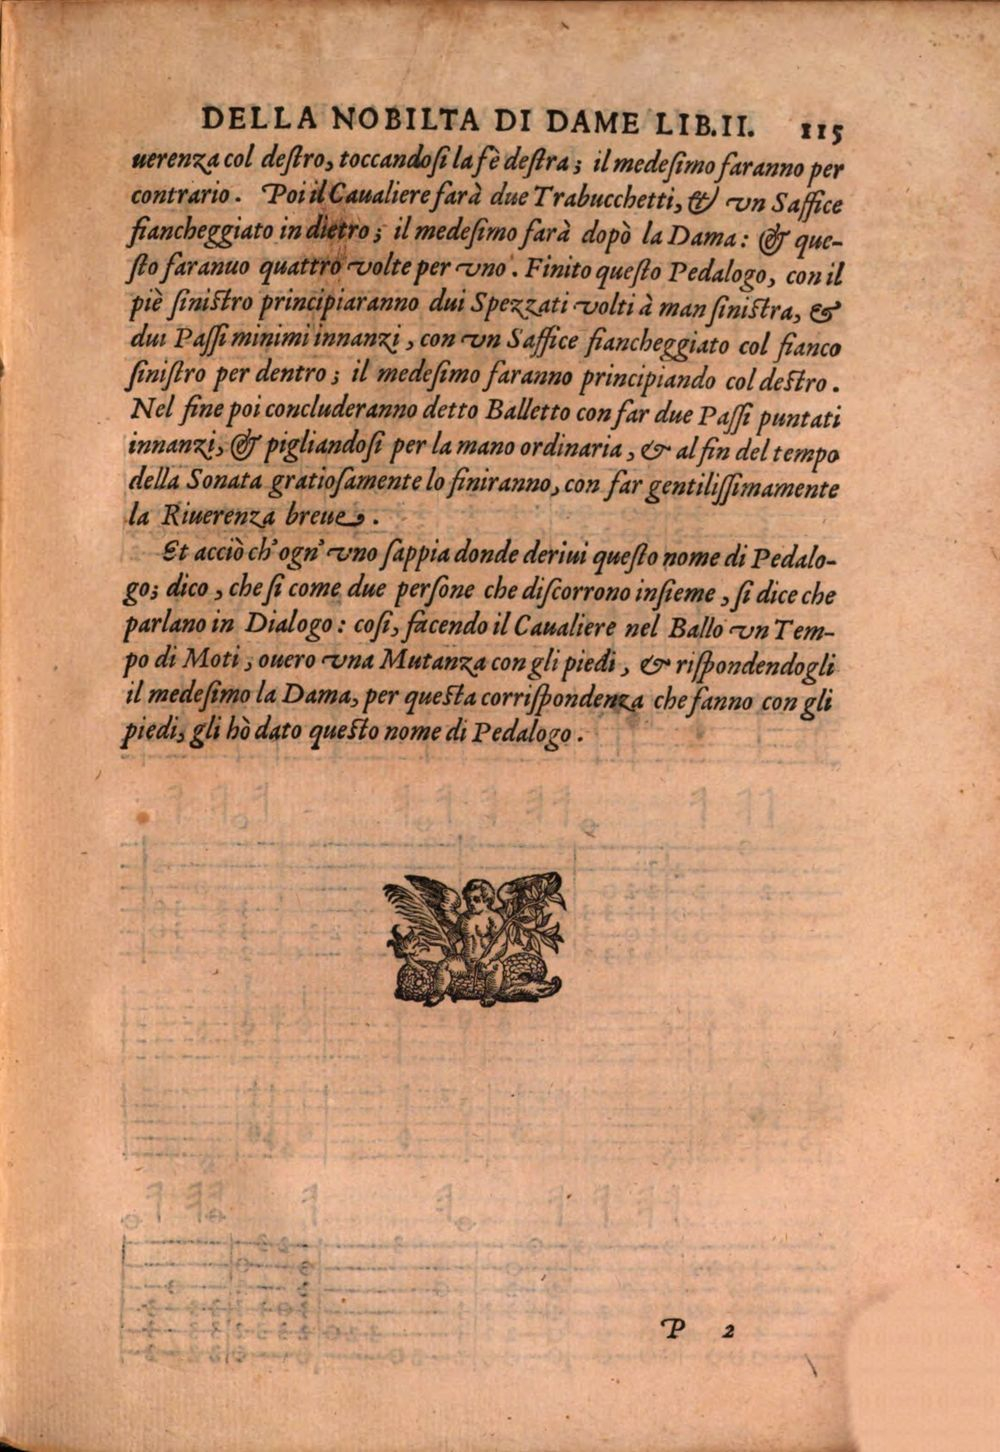 DELLA NOBILTA DI DAME LIB.II. 115
uerenza col deſtro, toccandoſi la fè deſtra; il medeſimo faranno per
contrario. Poi il Caualiere farà due Trabucchetti, & vn Saffice
fiancheggiato in dietro; il medeſimo farà dopò la Dama: & que-
ſto faranuo quattro volte per vno. Finito queſto Pedalogo, con il
piè ſiniſtro principiaranno dui Spezzati volti à man ſiniſtra, &
dui Paſſi minimi innanzi, con vn Saffice fiancheggiato col fianco
ſiniſtro per dentro; il medeſimo faranno principiando col deſtro.
Nel fine poi concluderanno detto Balletto con far due Paſſi puntati
innanzi, & pigliandoſi per la mano ordinaria, & al fin del tempo
della Sonata gratioſamente lo finiranno, con far gentiliſſimamente
la Riuerenza breue.
Et acciò ch'ogn'vno ſappia donde deriui queſto nome di Pedalo-
go; dico, che ſi come due perſone che diſcorrono inſieme, ſi dice che
parlano in Dialogo: coſi, facendo il Caualiere nel Ballo vn Tem-
po di Moti, ouero vna Mutanza con gli piedi, & riſpondendogli
il medeſimo la Dama, per queſta corriſpondenza che fanno con gli
piedi, gli hò dato queſto nome di Pedalogo.
P 2